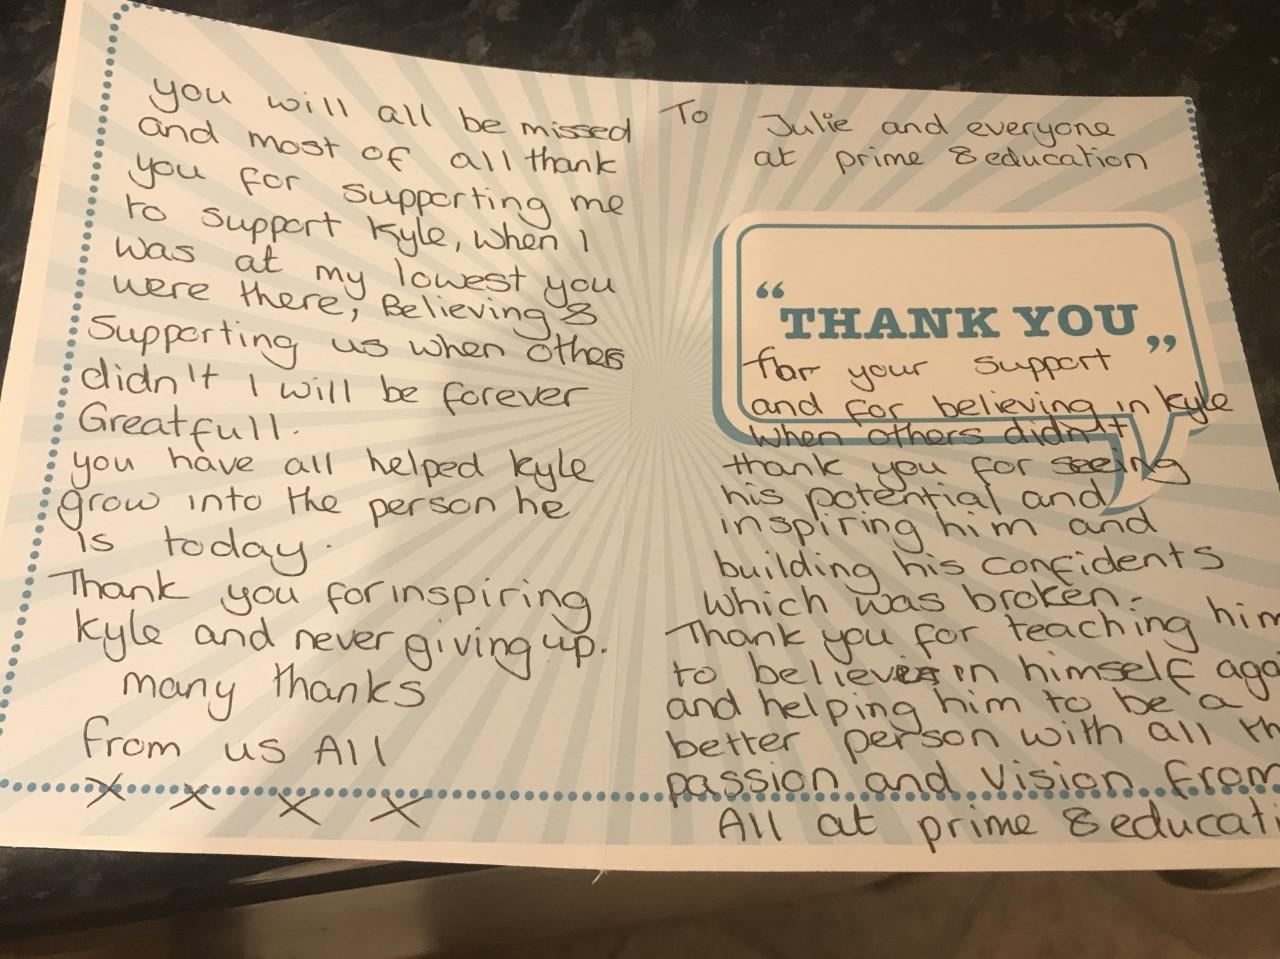 you will all be missed
and most of all thank
you for supporting me
to support Kyle, when I
was at my lowest you
were there, Believing &
Supporting us when others
didn't I will be forever
Greatfull.
you have all helped Kyle
grow into the person he
is today.
Thank you for inspiring
Kyle and never giving up.
many thanks
from us All
x x x x
To Julie and everyone
at prime 8 education
“THANK YOU”
for your support
and for believing in Kyle
when others didn't
thank you for seeing
his potential and
inspiring him and
building his confidents
which was broken.
Thank you for teaching him
to believe in himself aga
and helping him to be a
better person with all th
passion and vision from
All at prime 8 educati